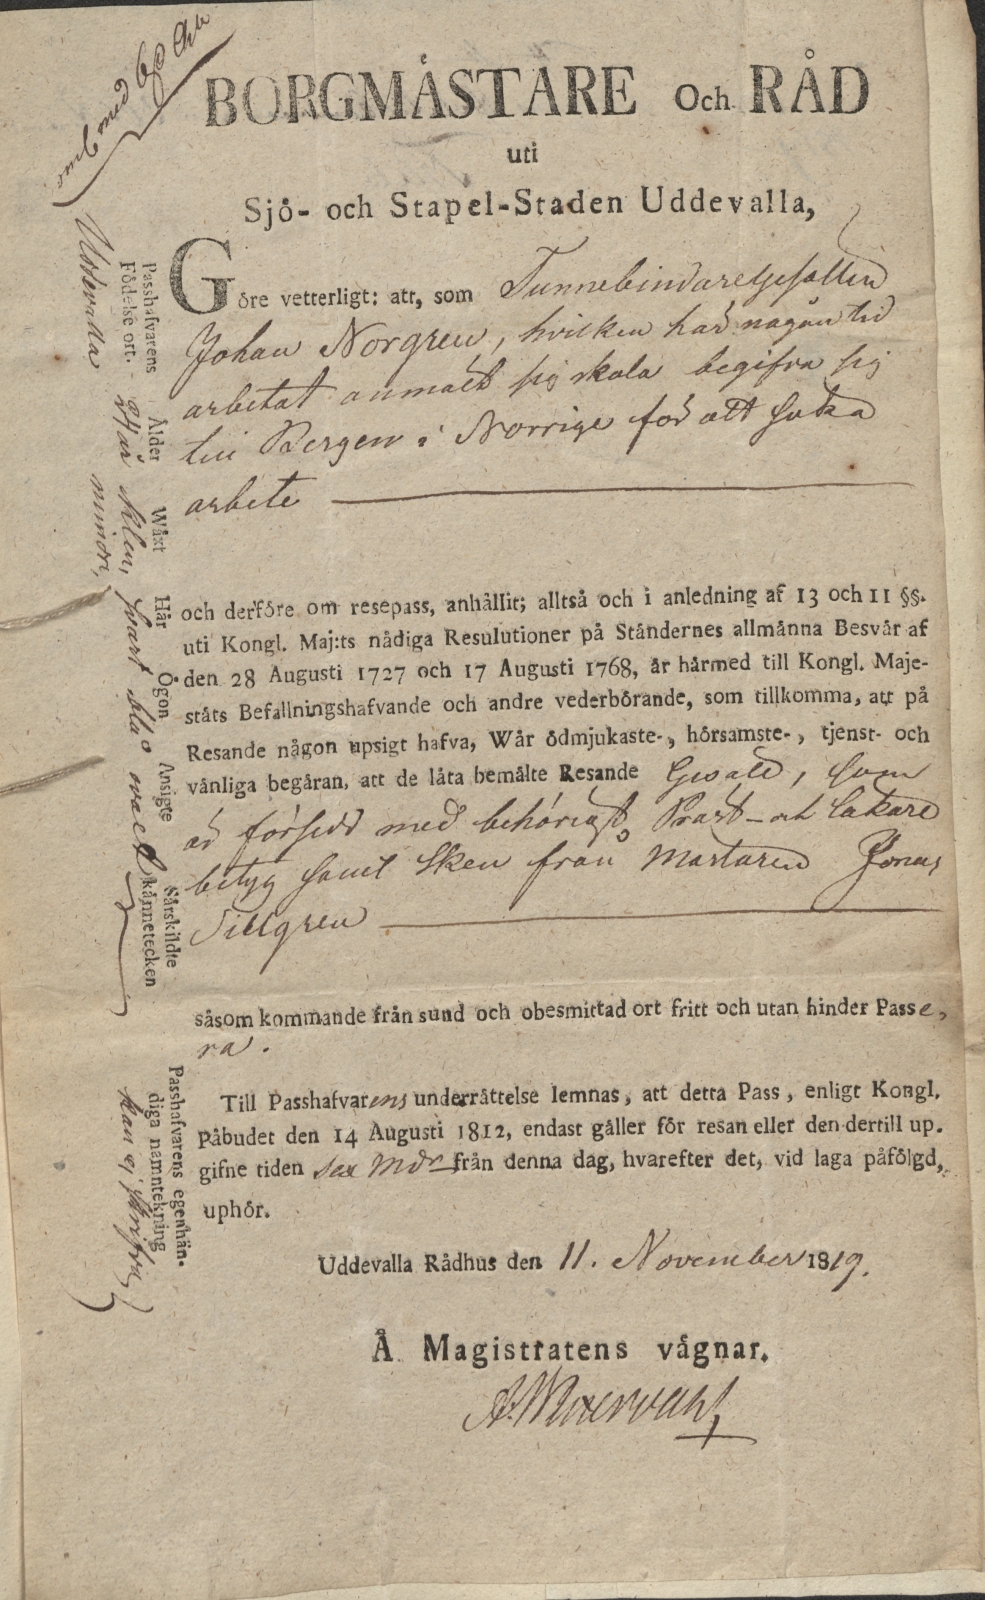 BORGMÅSTARE och RÅD
uti
Sjö- och Stapel-Staden Uddevalla,
Göre vetterligt: att, som Tunnebindaregesällen
Johan Norgren, hvilken här någon tid
arbetat anmält sig skola begifva sig
till Bergen i Norrige för att söka
arbete
och derföre om resepass, anhållit; alltså och i anledning af 13 och 11 §§.
uti Kongl. Maj:ts nådiga Resulutioner på Ståndernes allmånna Besvår af
den 28 Augusti 1727 och 17 Augusti 1768, år hårmed till Kongl. Maje-
ståts Befallningshafvande och andre vederbörande, som tillkomma, att på
Resande någon upsigt hafva, Wår ödmjukaste-, hörsamste-, tjenst- och
vånliga begåran, att de låta bemålte Resande Gesäll, som
är försedd med behörigt Präst- och Läkare
betyg samt sken från Mästaren Jonas
Tillgren
såsom kommande från sund och obesmittad ort fritt och utan hinder Passe,
ra.
Till Passhafvarens underråttelse lemnas, att detta Pass, enligt Kongl.
Påbudet den 14 Augusti 1812, endast gåller för resan eller den dertill up.
gifne tiden sex Mdr från denna dag, hvarefter det, vid laga påföljd,
uphör.
Uddevalla Rådhus den 11. November 1819.
Å Magistratens vågnar.
Passhafvarens
Födelse ort.
Uddevalla
Ålder
24 år
Wåxt
mindre,
Hår
svart
Ögon
blå
Ansigte
ovalt
Sårskildte
kånnetecken
Passhafvarens egenhån-
diga namntekning
kan ej skrifva